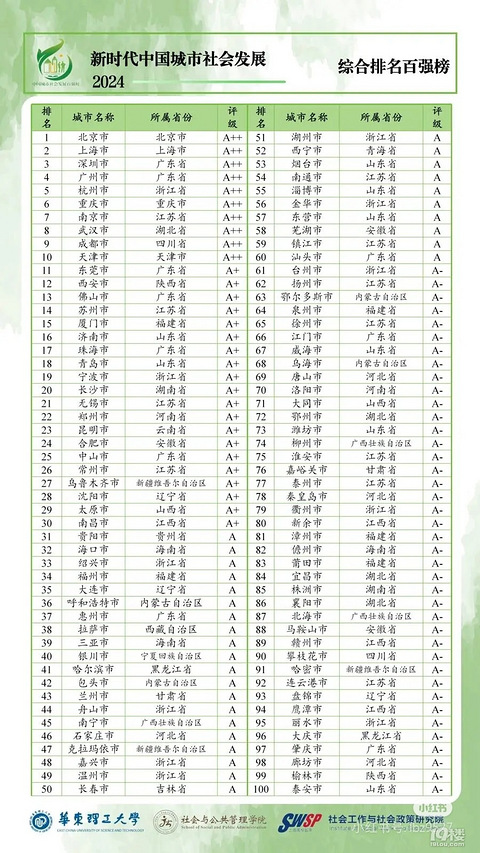 新时代中国城市社会发展
2024
综合排名百强榜
排名 城市名称 所属省份 评级 排名 城市名称 所属省份 评级
1 北京市 北京市 A++ 51 湖州市 浙江省 A
2 上海市 上海市 A++ 52 西宁市 青海省 A
3 深圳市 广东省 A++ 53 烟台市 山东省 A
4 广州市 广东省 A++ 54 南通市 江苏省 A
5 杭州市 浙江省 A++ 55 淄博市 山东省 A
6 重庆市 重庆市 A++ 56 金华市 浙江省 A
7 南京市 江苏省 A++ 57 东营市 山东省 A
8 武汉市 湖北省 A++ 58 芜湖市 安徽省 A
9 成都市 四川省 A++ 59 镇江市 江苏省 A
10 天津市 天津市 A++ 60 汕头市 广东省 A
11 东莞市 广东省 A+ 61 台州市 浙江省 A-
12 西安市 陕西省 A+ 62 扬州市 江苏省 A-
13 佛山市 广东省 A+ 63 鄂尔多斯市 内蒙古自治区 A-
14 苏州市 江苏省 A+ 64 泉州市 福建省 A-
15 厦门市 福建省 A+ 65 徐州市 江苏省 A-
16 济南市 山东省 A+ 66 江门市 广东省 A-
17 珠海市 广东省 A+ 67 威海市 山东省 A-
18 青岛市 山东省 A+ 68 乌海市 内蒙古自治区 A-
19 宁波市 浙江省 A+ 69 唐山市 河北省 A-
20 长沙市 湖南省 A+ 70 洛阳市 河南省 A-
21 无锡市 江苏省 A+ 71 大同市 山西省 A-
22 郑州市 河南省 A+ 72 鄂州市 湖北省 A-
23 昆明市 云南省 A+ 73 潍坊市 山东省 A-
24 合肥市 安徽省 A+ 74 柳州市 广西壮族自治区 A-
25 中山市 广东省 A+ 75 淮安市 江苏省 A-
26 常州市 江苏省 A+ 76 嘉峪关市 甘肃省 A-
27 乌鲁木齐市 新疆维吾尔自治区 A+ 77 泰州市 江苏省 A-
28 沈阳市 辽宁省 A+ 78 秦皇岛市 河北省 A-
29 太原市 山西省 A+ 79 衢州市 浙江省 A-
30 南昌市 江西省 A+ 80 新余市 江西省 A-
31 贵阳市 贵州省 A 81 漳州市 福建省 A-
32 海口市 海南省 A 82 儋州市 海南省 A-
33 绍兴市 浙江省 A 83 莆田市 福建省 A-
34 福州市 福建省 A 84 宜昌市 湖北省 A-
35 大连市 辽宁省 A 85 株洲市 湖南省 A-
36 呼和浩特市 内蒙古自治区 A 86 襄阳市 湖北省 A-
37 惠州市 广东省 A 87 北海市 广西壮族自治区 A-
38 拉萨市 西藏自治区 A 88 马鞍山市 安徽省 A-
39 三亚市 海南省 A 89 赣州市 江西省 A-
40 银川市 宁夏回族自治区 A 90 攀枝花市 四川省 A-
41 哈尔滨市 黑龙江省 A 91 哈密市 新疆维吾尔自治区 A-
42 包头市 内蒙古自治区 A 92 连云港市 江苏省 A-
43 兰州市 甘肃省 A 93 盘锦市 辽宁省 A-
44 舟山市 浙江省 A 94 鹰潭市 江西省 A-
45 南宁市 广西壮族自治区 A 95 丽水市 浙江省 A-
46 石家庄市 河北省 A 96 大庆市 黑龙江省 A-
47 克拉玛依市 新疆维吾尔自治区 A 97 肇庆市 广东省 A-
48 嘉兴市 浙江省 A 98 廊坊市 河北省 A-
49 温州市 浙江省 A 99 榆林市 陕西省 A-
50 长春市 吉林省 A 100 泰安市 山东省 A-
华东理工大学
EAST CHINA UNIVERSITY OF SCIENCE AND TECHNOLOGY
社会与公共管理学院
School of Social and Public Administration
SWSP
社会工作与社会政策研究院
小红书
19楼
19lou.com